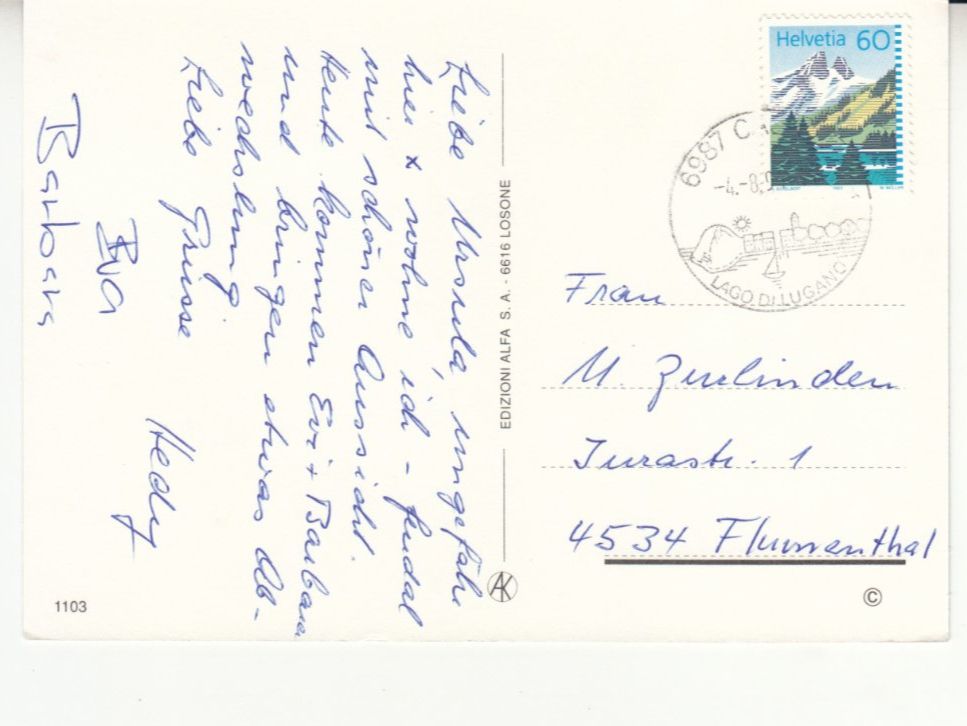 Liebe Ursula, ungefähr
hier x wohne ich - feudal
mit schöner Aussicht.
Heute kommen Evi + Barbara
und bringen etwas Ab-
wechslung.
Liebe Grüsse
Hedy
Barbara
1103
EDIZIONI ALFA S. A. - 6616 LOSONE
AK
Helvetia 60
6987 C
-4.-8.
LAGO DI LUGANO
Frau
U. Zurlinden
Jurastr. 1
4534 Flumenthal
©